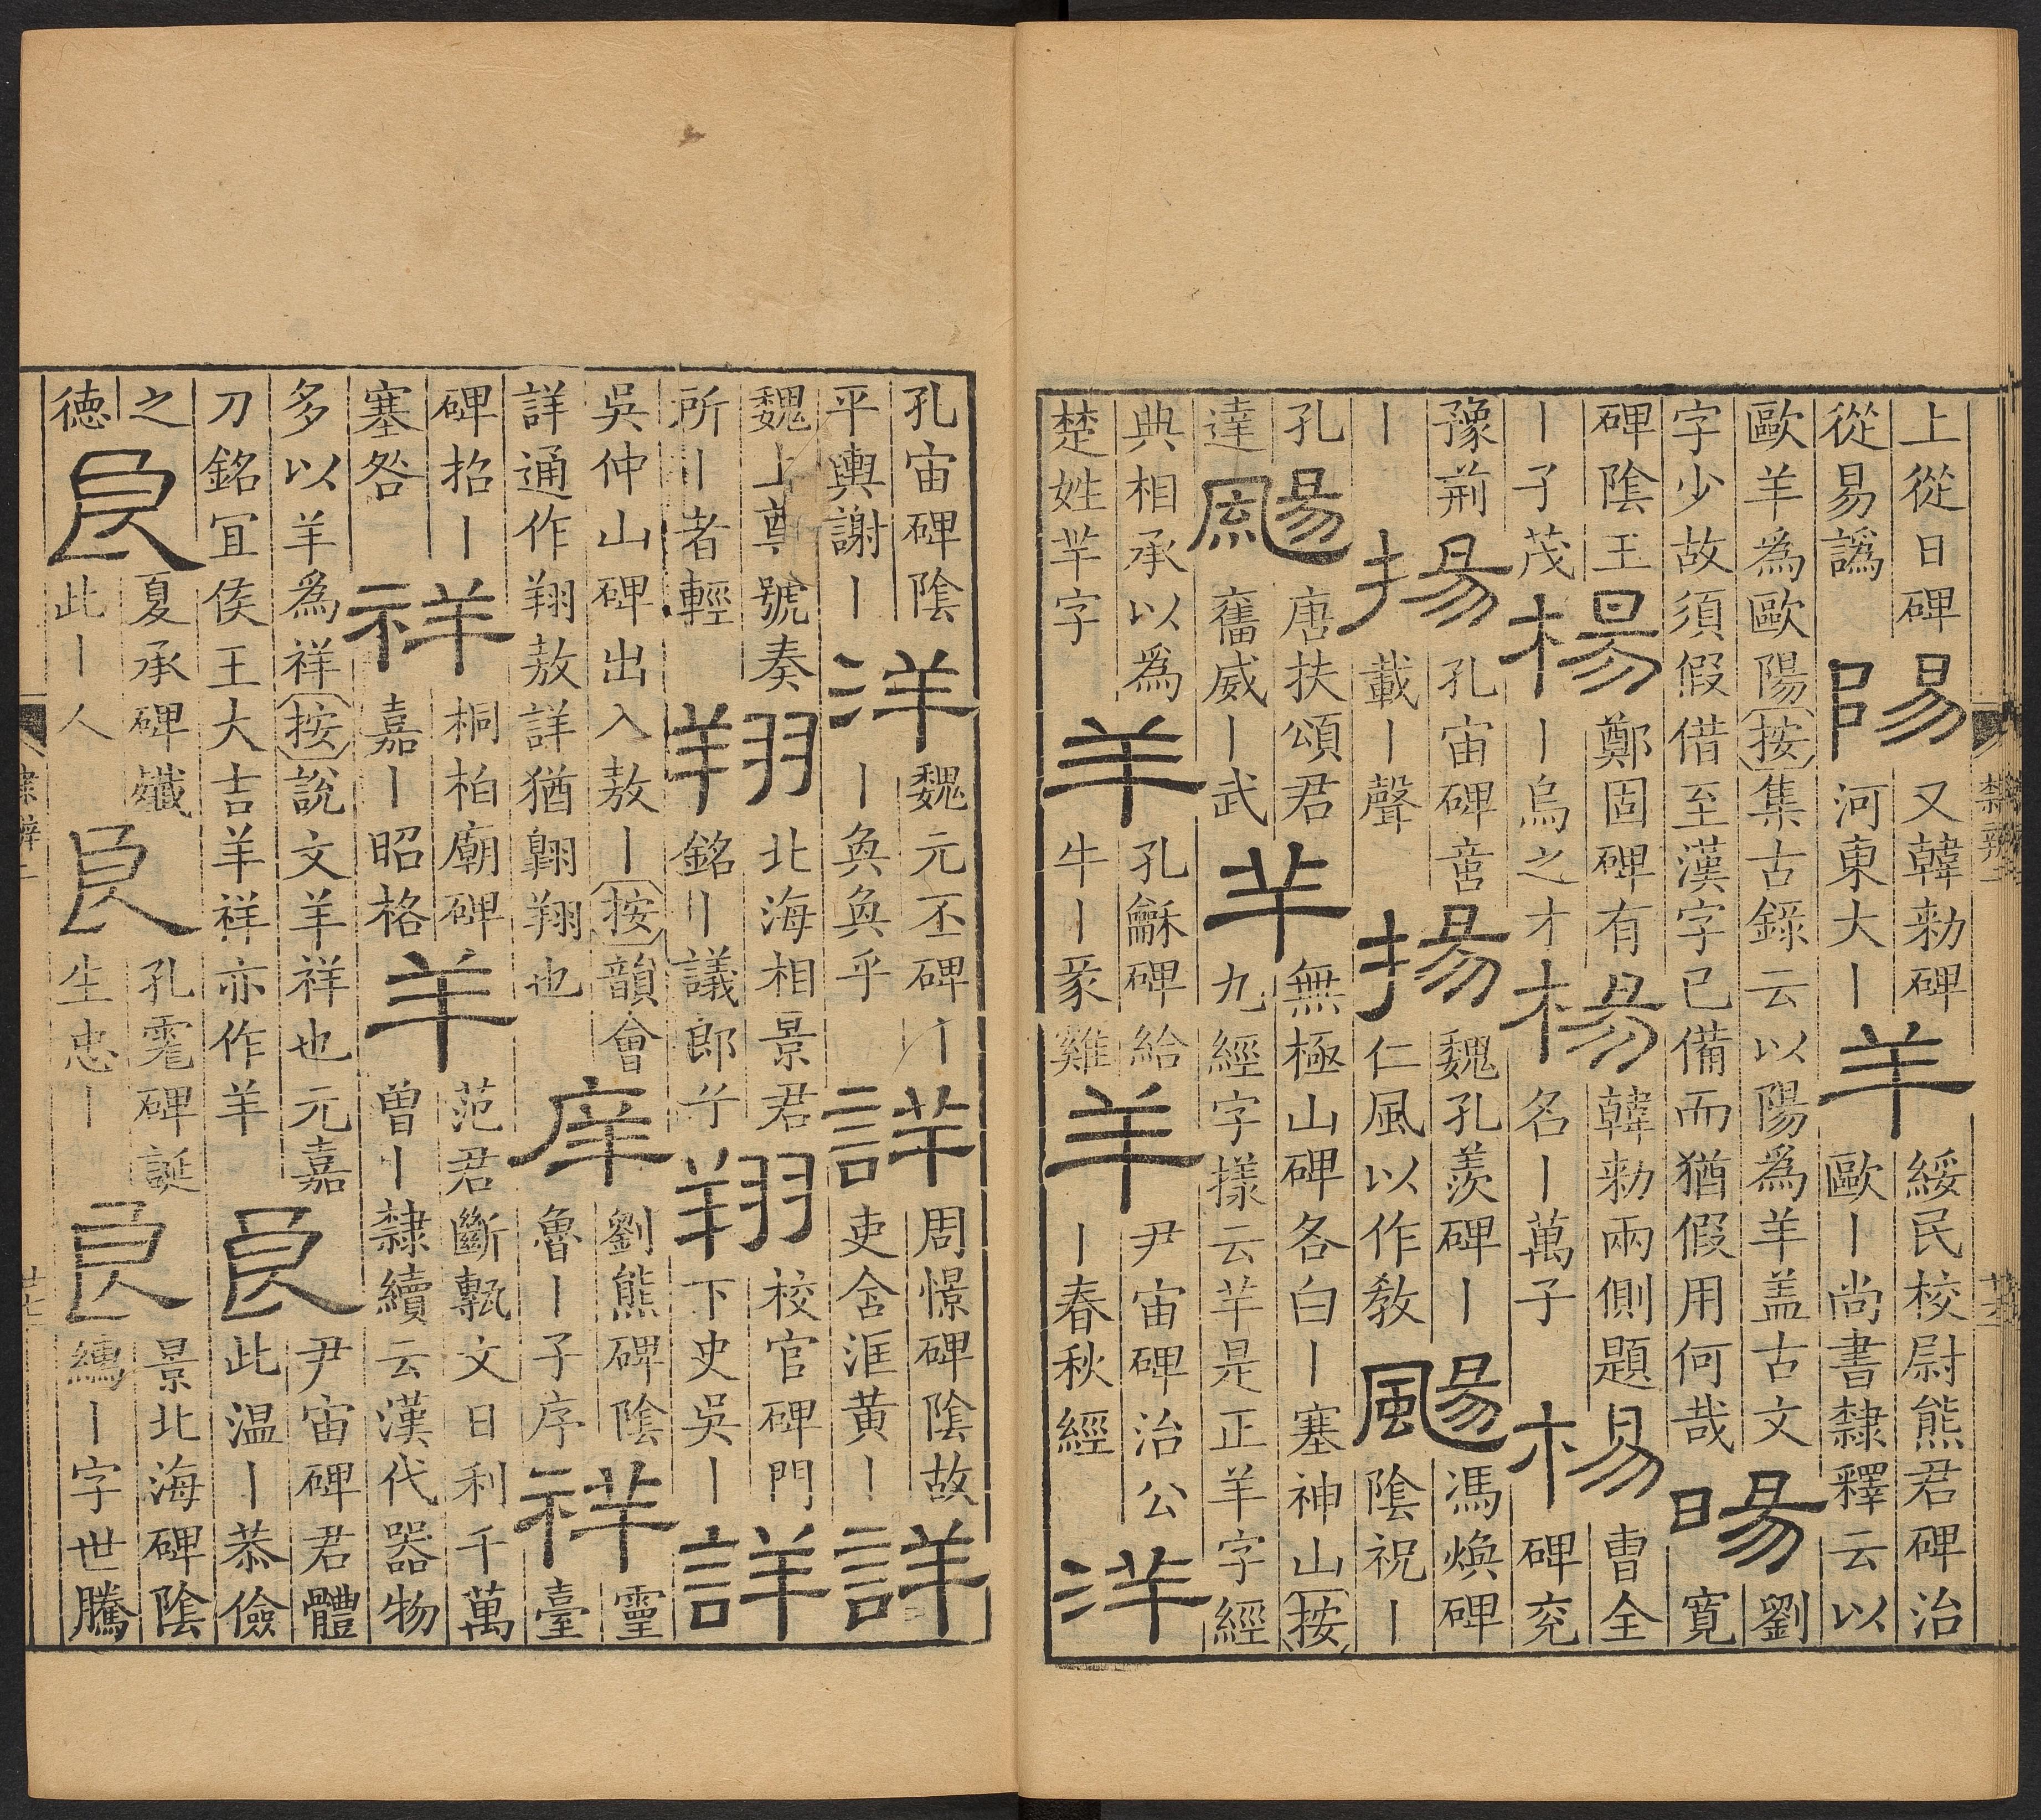 上從日碑從易譌陽又韓勑碑河東大丨羊綏民校尉熊君碑治歐丨尚書隸釋云以
歐羊為歐陽按集古錄云以陽為羊盖古文字少故須假借至漢字已備而猶假用何哉暘劉寛
碑陰王丨子茂楊鄭固碑有丨烏之才楊韓勑兩側題名丨萬子楊曹全碑兖
豫荊丨揚孔宙碑啻載丨聲揚魏孔羨碑丨仁風以作教颺馮煥碑陰祝丨
孔達颺唐扶頌君奮威丨武羊無極山碑各白丨塞神山按九經字㨾云羊是正羊字經
典相承以為楚姓羋字羊孔龢碑給牛丨豕雞羊尹宙碑治公丨春秋經洋
孔宙碑陰平輿謝丨洋魏元丕碑丨丨奐奐乎詳周憬碑陰故吏含洭黄丨詳
魏上尊號奏所丨者輕翔北海相景君銘丨議郎兮翔校官碑門下史吳丨詳
吳仲山碑出入敖丨按韻會詳通作翔敖詳猶翺翔也庠劉熊碑陰魯丨子序祥靈臺
碑招丨塞咎祥桐柏廟碑嘉丨昭格羊范君斷甎文日利千萬曾丨隸續云漢代器物
多以羊為祥按說文羊祥也元嘉刀銘宜侯王大吉羊祥亦作羊良尹宙碑君體此温丨恭儉
之德良夏承碑孅此丨人良孔彪碑誕生忠丨良景北海碑陰丨字世騰